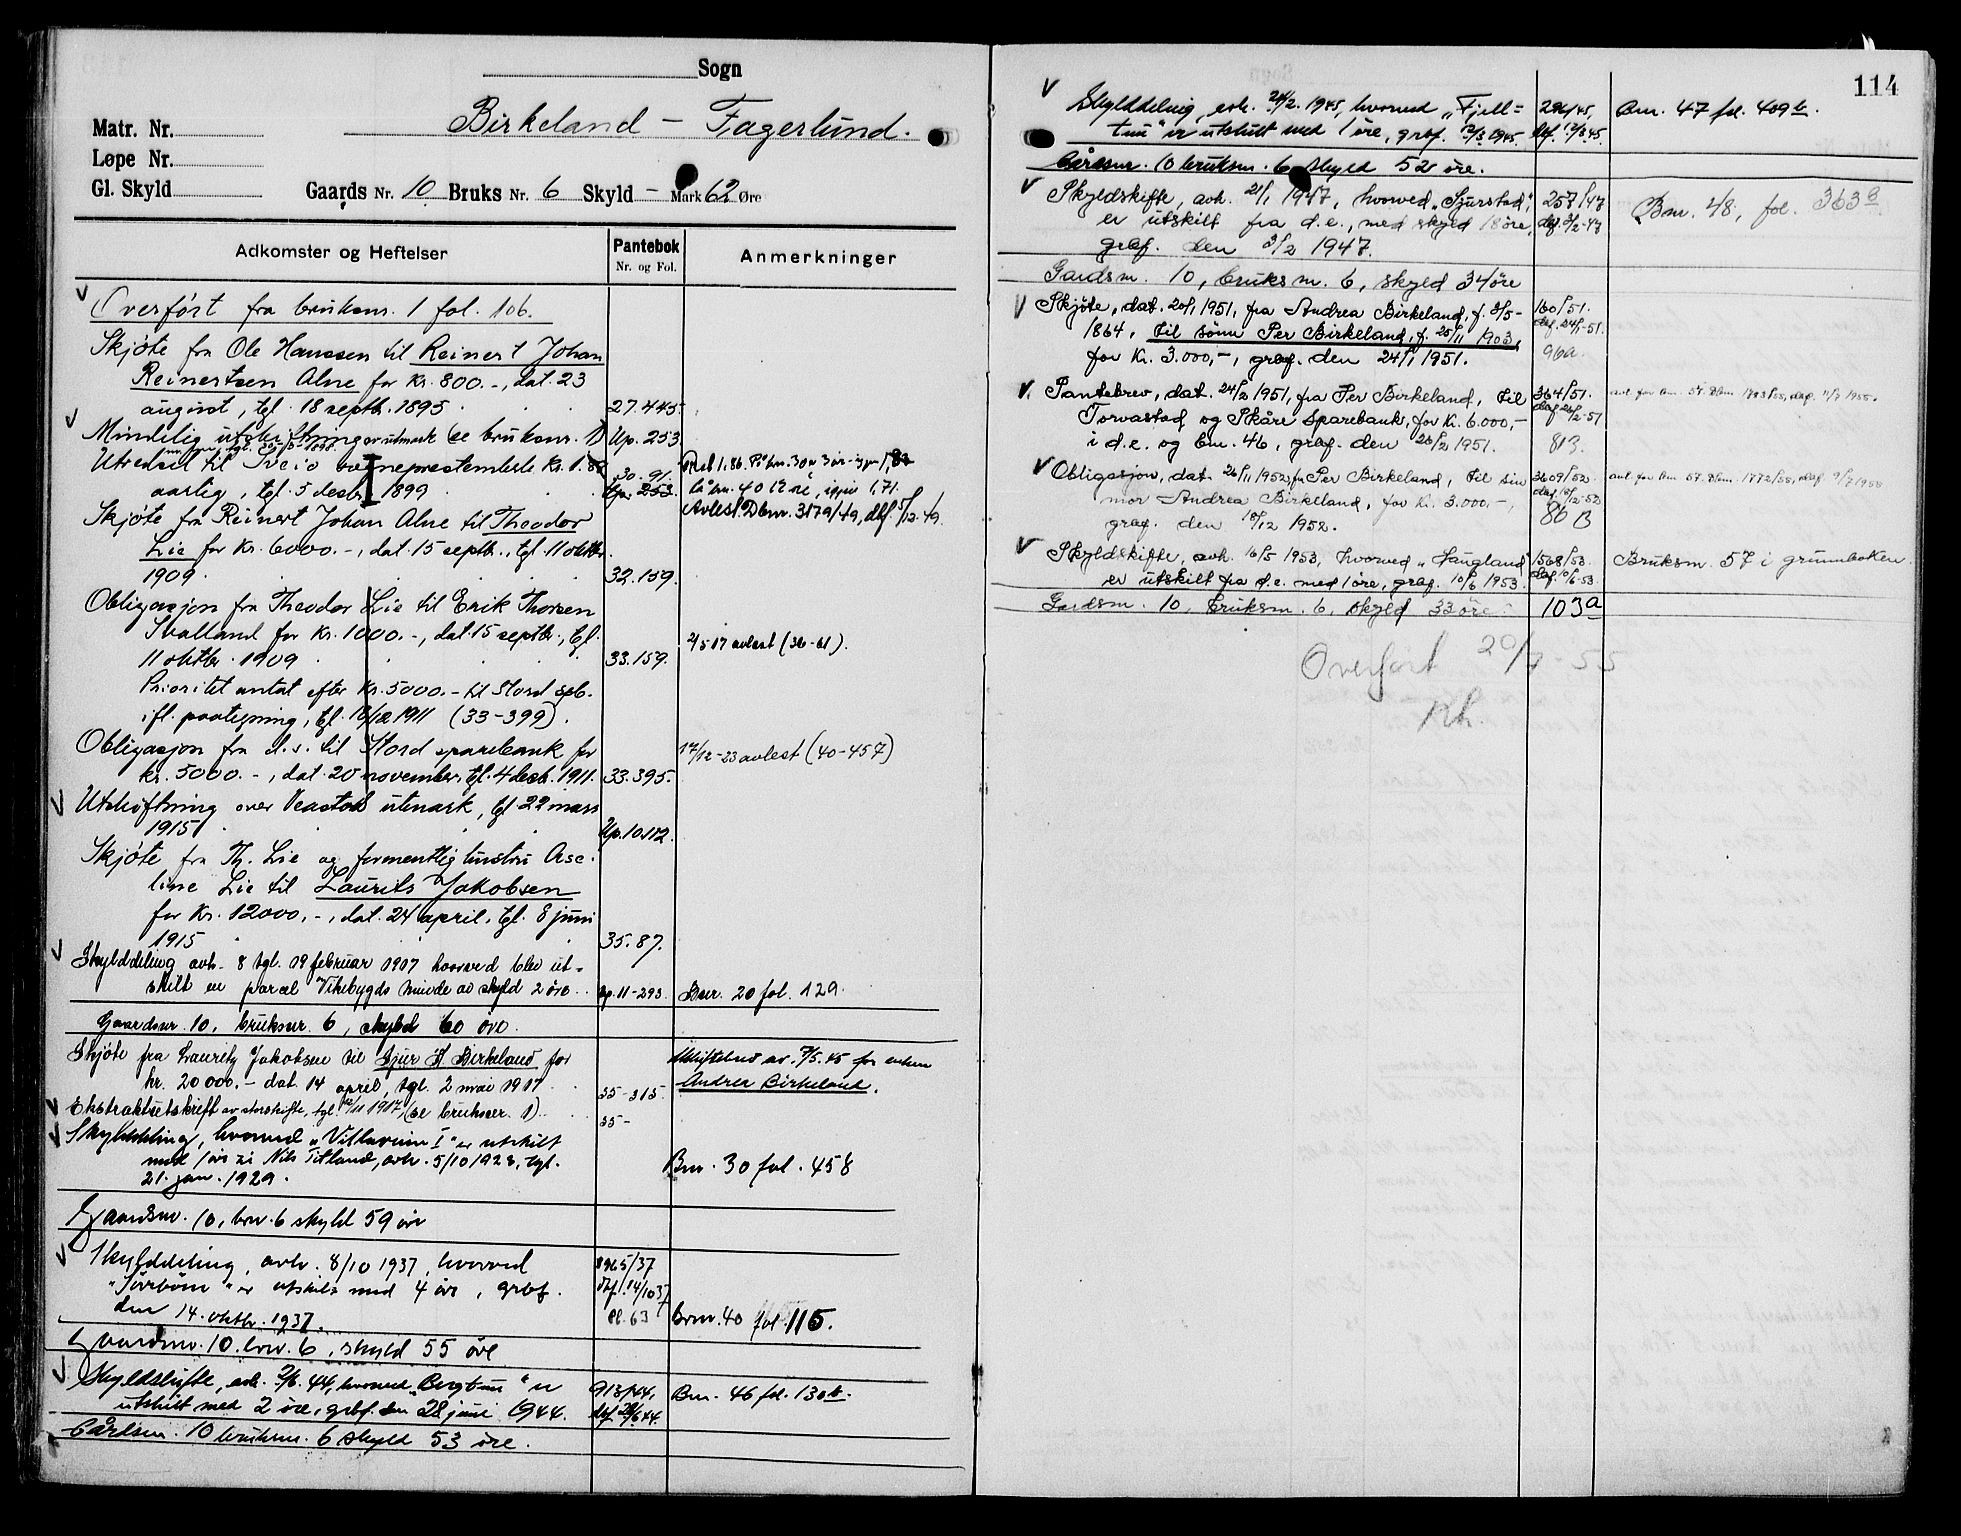 Sogn
Birkeland - Fagerlund.
Matr. Nr.
Løpe Nr.
Gl. Skyld
Gaards Nr. 10 Bruks Nr. 6 Skyld - Mark 62 Øre
Adkomster og Heftelser
Pantebok
Nr. og Fol.
Anmerkninger
Overført fra bruksnr. 1 fol. 106.
Skjøte fra Ole Hanssen til Reinert Johan
Reinertsen Alne for kr. 800.-, dat. 23
august, tgl. 18 septb. 1895 27.445
Mindelig utskiftning av utmark (se bruksnr. 1) Up. 253
Utredsel til Sveio sogneprestembede kr. 1.88 30.91.
aarlig, tgl. 5 desb. 1899 Up. 253.
På bnr. 30 av 3 øre
på bnr. 40 12 øre, igjen 1,71.
Avløst. Dbnr. 3179/49, dbf. 5/12-49.
Skjøte fra Reinert Johan Alne til Theodor
Lie for kr. 6000.-, dat. 15 septb., tgl. 11 oktbr.
1909. 32.159.
Obligasjon fra Theodor Lie til Erik Thorsen
Svalland for kr. 1000.-, dat. 15 septb., tgl.
11 oktbr. 1909 33.159. 2/5 17 avlest (36-61).
Prioritet antat efter kr. 5000.- til Stord spb.
ifl. paategning, tgl. 18/12 1911 (33-399).
Obligasjon fra d.s. til Stord sparebank for
kr. 5000.-, dat. 20 november, tgl. 4 desb. 1911. 33.395. 17/12-23 avlest (40-457)
Utskiftning over Veastad utmark, tgl. 22 mars
1915 Up. 10.112.
Skjøte fra Th. Lie og formentlig hustru Ase-
line Lie til Laurits Jakobsen
for kr. 12000.-, dat. 24 april, tgl. 8 juni
1915 35.87.
Skylddeling avh. 8 tgl. 19 februar 1917 hvorved blev ut-
skilt en parcel Vikebygds minde av skyld 2 øre. Up. 11-293. Bnr. 20 fol. 129.
Gaardsnr. 10, bruksnr. 6, skyld 60 øre.
Skjøte fra Lauritz Jakobsen til Sjur Birkeland for
kr. 20000.- dat. 14 april, tgl. 2 mai 1917. 35-315.
Uskiftebev. av 7/5.45 for enken
Andrea Birkeland.
Ekstraktutskrift av utskifte, tgl. 12/11 1917, (se bruksnr. 1). 35-
Skylddeling, hvorved "Villarum I" er utskilt
med 1 øre til Nils Titland, avh. 5/10 1928, tgl.
21. jan. 1929. Bnr. 30 fol. 458
Gaardsnr. 10, bnr. 6 skyld 59 øre
Skylddeling, avh. 8/10 1937, hvorved
"Sørbøen" er utskilt med 4 øre, grbf.
den 14. oktbr. 1937. 1965/37
dbf. 14/10 37
Pl. 63 Bnr. 40 fol. 115.
Gaardsnr. 10. bnr. 6, skyld 55 øre
Skyldskifte, avh. 2/6.44, hvorved "Bergtun" er
utskilt med 2 øre, grbf. den 28 juni 1944. 913/44,
dbf. 28/6 44. Bnr. 46 fol. 130b.
Gårdsnr. 10 bruksnr. 6 skyld 53 øre.
114
Skylddeling, avh. 24/2. 1945, hvorved "Fjell=
tun" er utskilt med 1 øre, grbf. 12/3 1945. 296/45,
dbf. 12/3 45. Bnr. 47 fol. 409b.
Gårdsnr. 10 bruksnr. 6 skyld 52 øre.
Skyldskifte, avh. 21/1 1947, hvorved "Sjurstad",
er utskilt fra d.e., med skyld 18 øre,
grbf. den 3/2 1947. 257/47
dbf. 3/2-47 Bnr. 48, fol. 363a
Gardsnr. 10, bruksnr. 6, skyld 34 øre
Skjøte, dat. 20/1 1951, fra Andrea Birkeland, f. 3/5-
1864, til sønn Per Birkeland, f. 25/11 1903,
for kr. 3.000,-, grbf. den 24/1 1951. 160/51.
dbf. 24/1-51.
96a.
Pantebrev, dat. 24/2 1951, fra Per Birkeland, til
Torvastad og Skåre Sparebank, for kr. 6.000,-
i d.e. og bnr. 46, grbf. den 26/2 1951. 364/51.
dbf. 26/2-51
813. avl. for bnr. 57. Dbnr. 1793/55, dbf. 11/7 1955.
Obligasjon, dat. 26/11 1952, fra Per Birkeland, til sin
mor Andrea Birkeland, for kr. 3.000,-,
grbf. den 18/12 1952. 3609/52.
dbf. 18/12-52
86 B avl. for bnr. 57. Dbnr. 1772/55, dbf. 9/7 1955
Skyldskifte, avh. 16/5 1953, hvorved "Haugland"
er utskilt fra d.e. med 1 øre, grbf. 10/6 1953. 1568/53.
dbf. 10/6-53. Bruksnr. 57 i grunnboken
Gardsnr. 10, bruksnr. 6, skyld 33 øre. 103a
Overført 20/7-55
Rh.